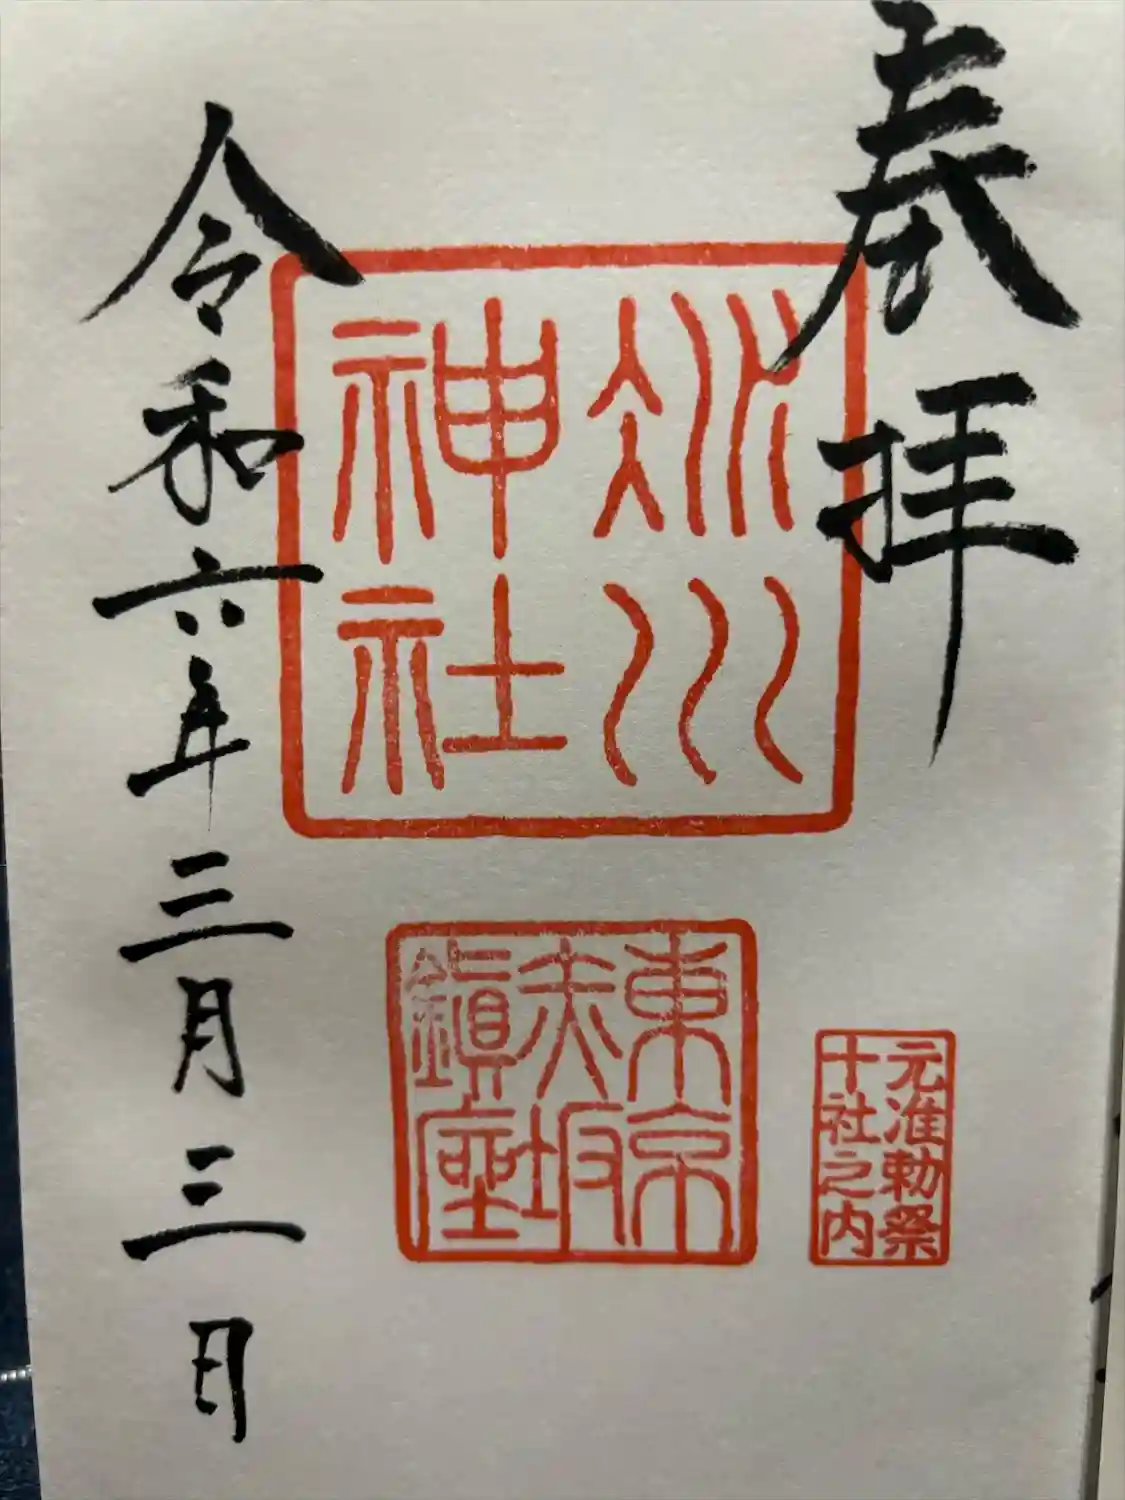 奉拝
氷川
神社
元准勅祭
十社之内
東京
赤坂
鎮座
令和六年三月三日